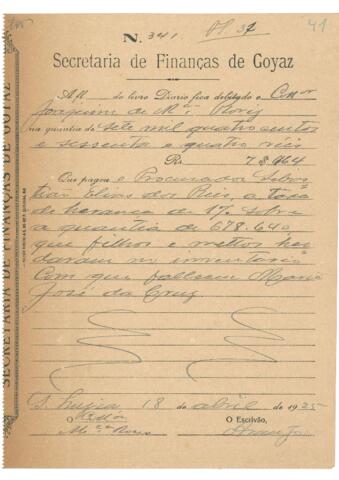 41
N. 341
Fl. 37
Secretaria de Finanças de Goyaz
A fl. do livro Diario fica debitado o
Joaquim de
na quantia de sete mil quatro centos
e sessenta e quatro réis
Rs. 7$464
Que pagou o Procurador Sebas
tião Elias dos Reis, a taxa
de herança de 1% sobre
a quantia de 678.640
que filhos e nettos her
daram no inventario
Com que falleceu Maria
José da Cruz
S. Luzia 18 de abril de 1925
O O Escrivão,
SECRETARIA DE FINANÇAS DE GOYAZ